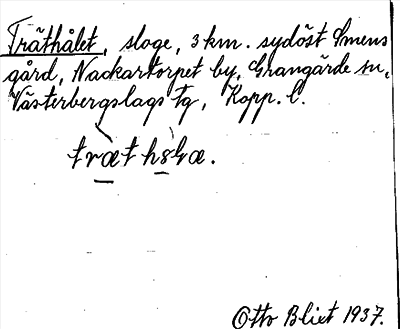 Träthålet, sloge, 3 km. sydöst Smens
gård, Nackartorpet by, Grangärde sn,
Västerbergslags Fg, Kopp. l.
træth
Otto Blixt 1937.